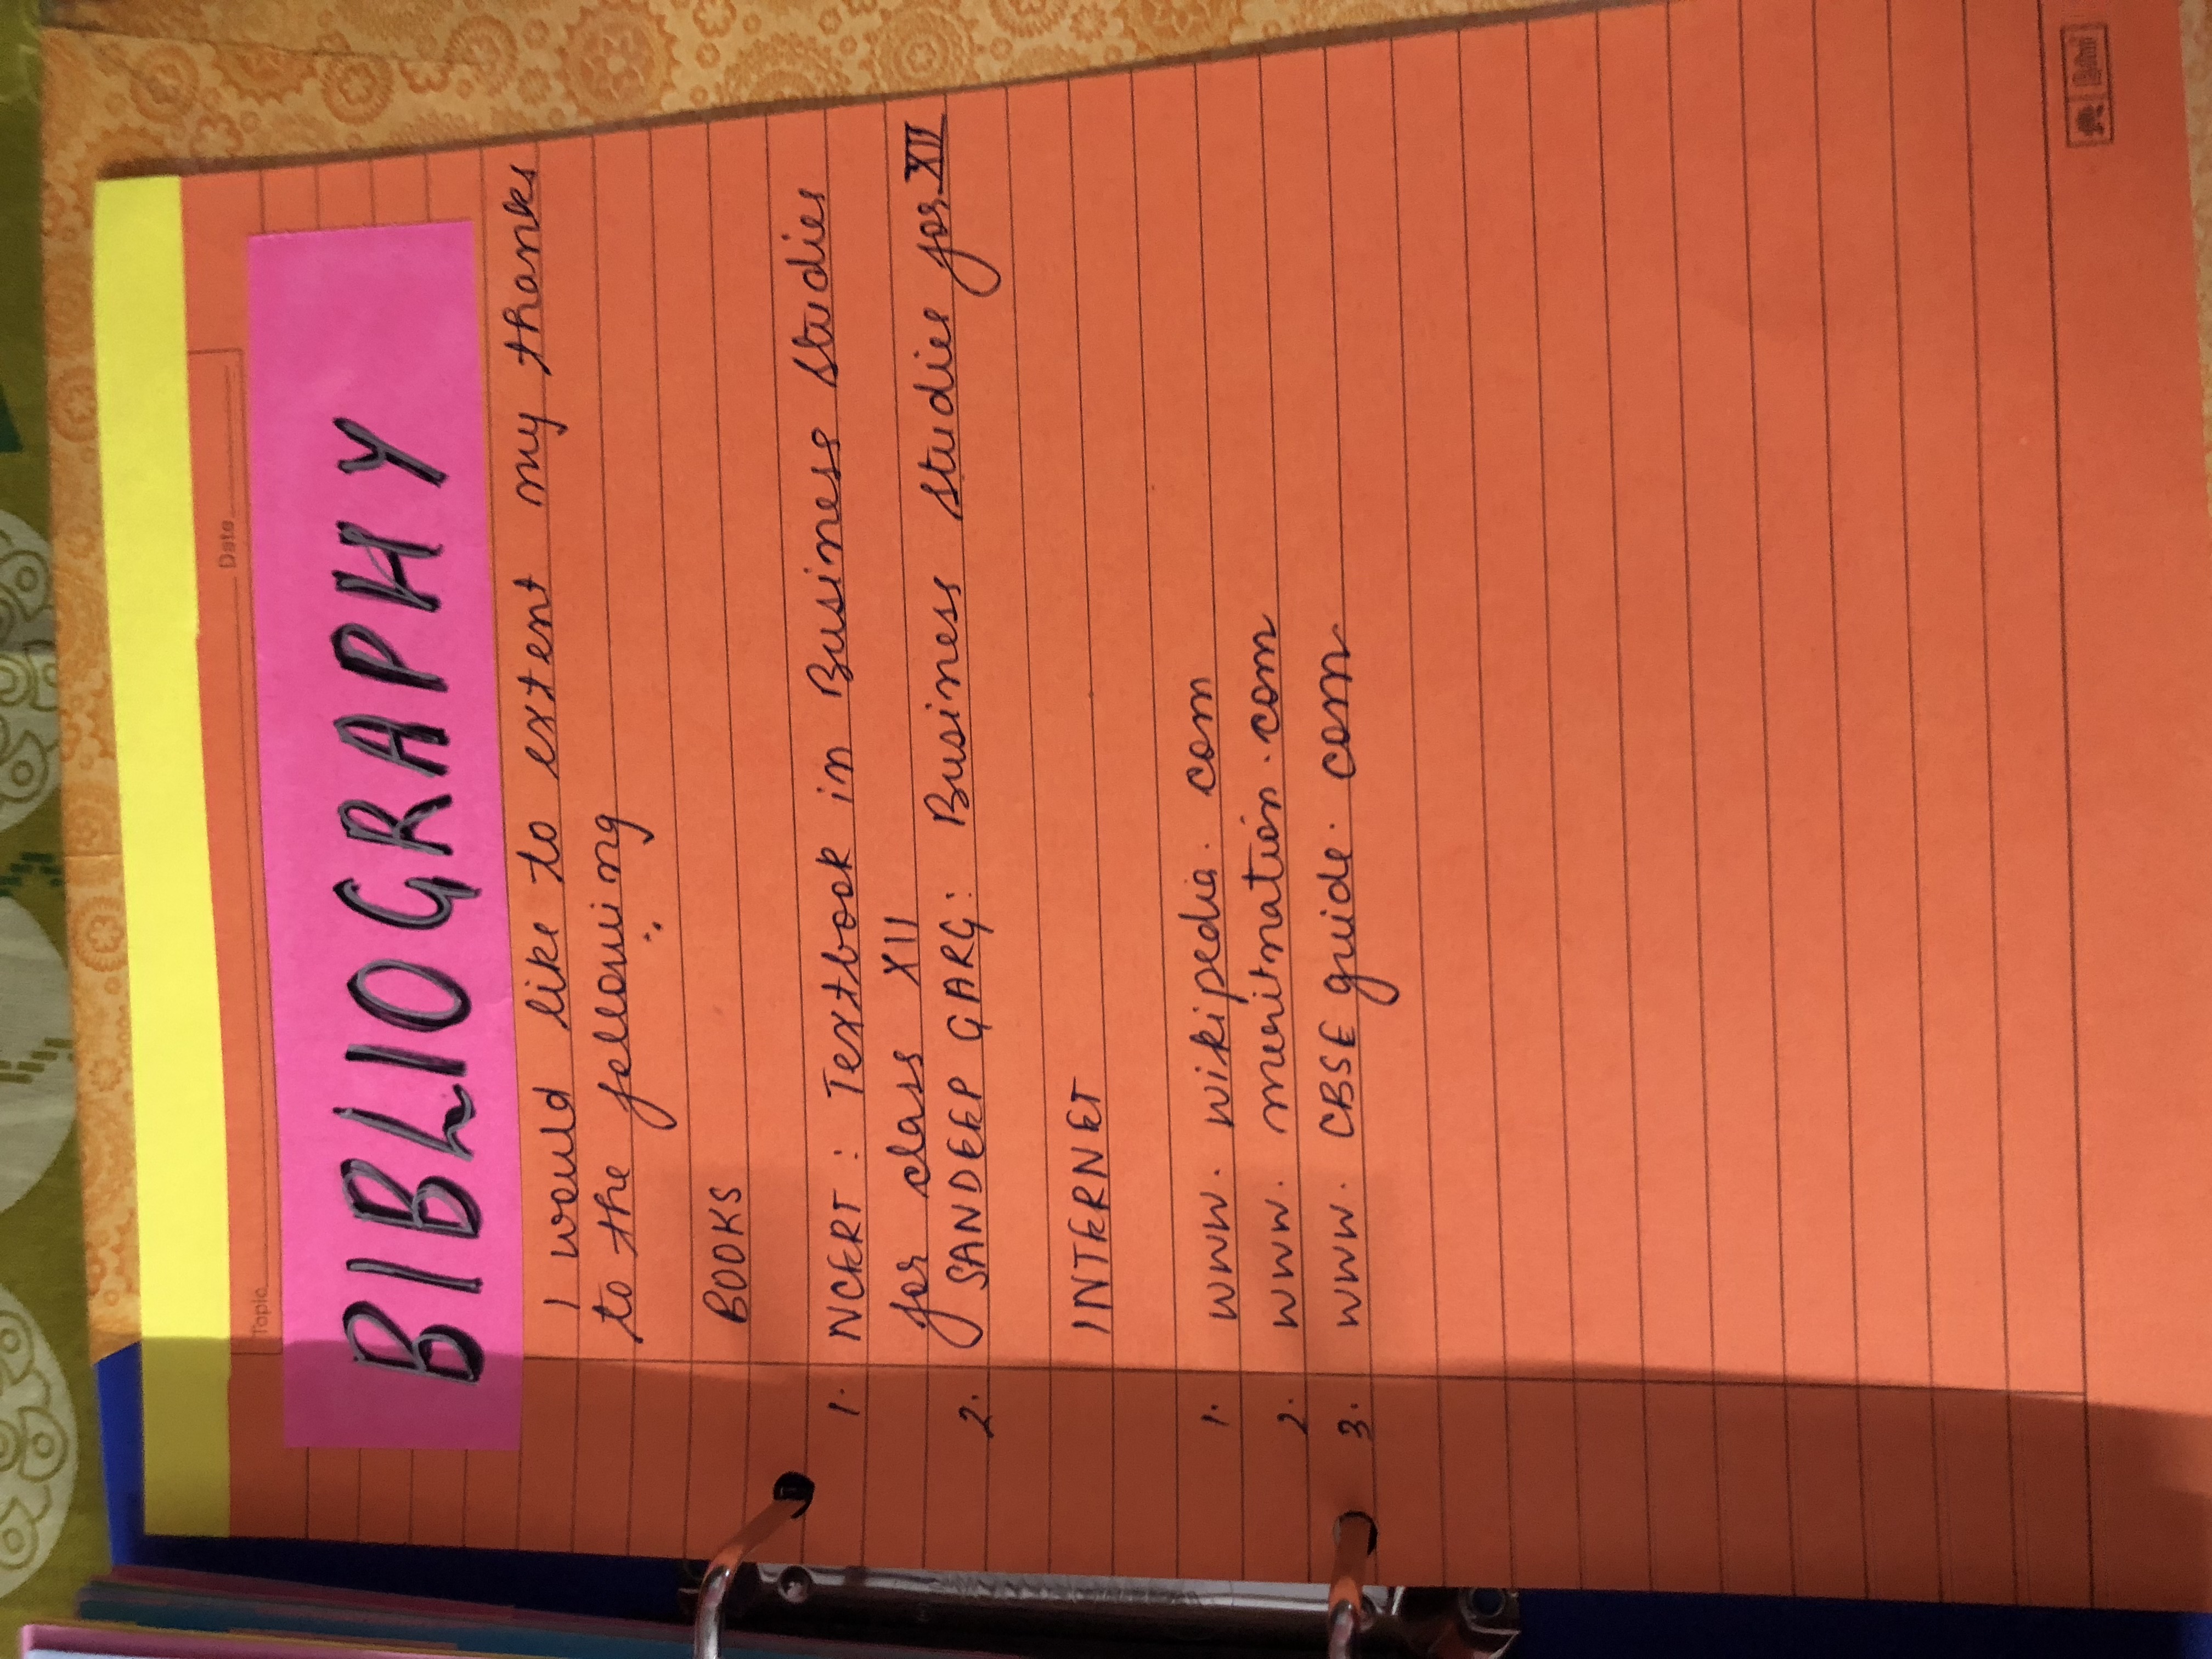 Topic Date
BIBLIOGRAPHY
I would like to extent my thanks
to the following :
BOOKS
1. NCERT : Textbook in Business Studies
for class XII
2. SANDEEP GARG : Business Studies for XII
INTERNET
1. www. wikipedia. com
2. www. meritnation. com
3. www. CBSE guide. com